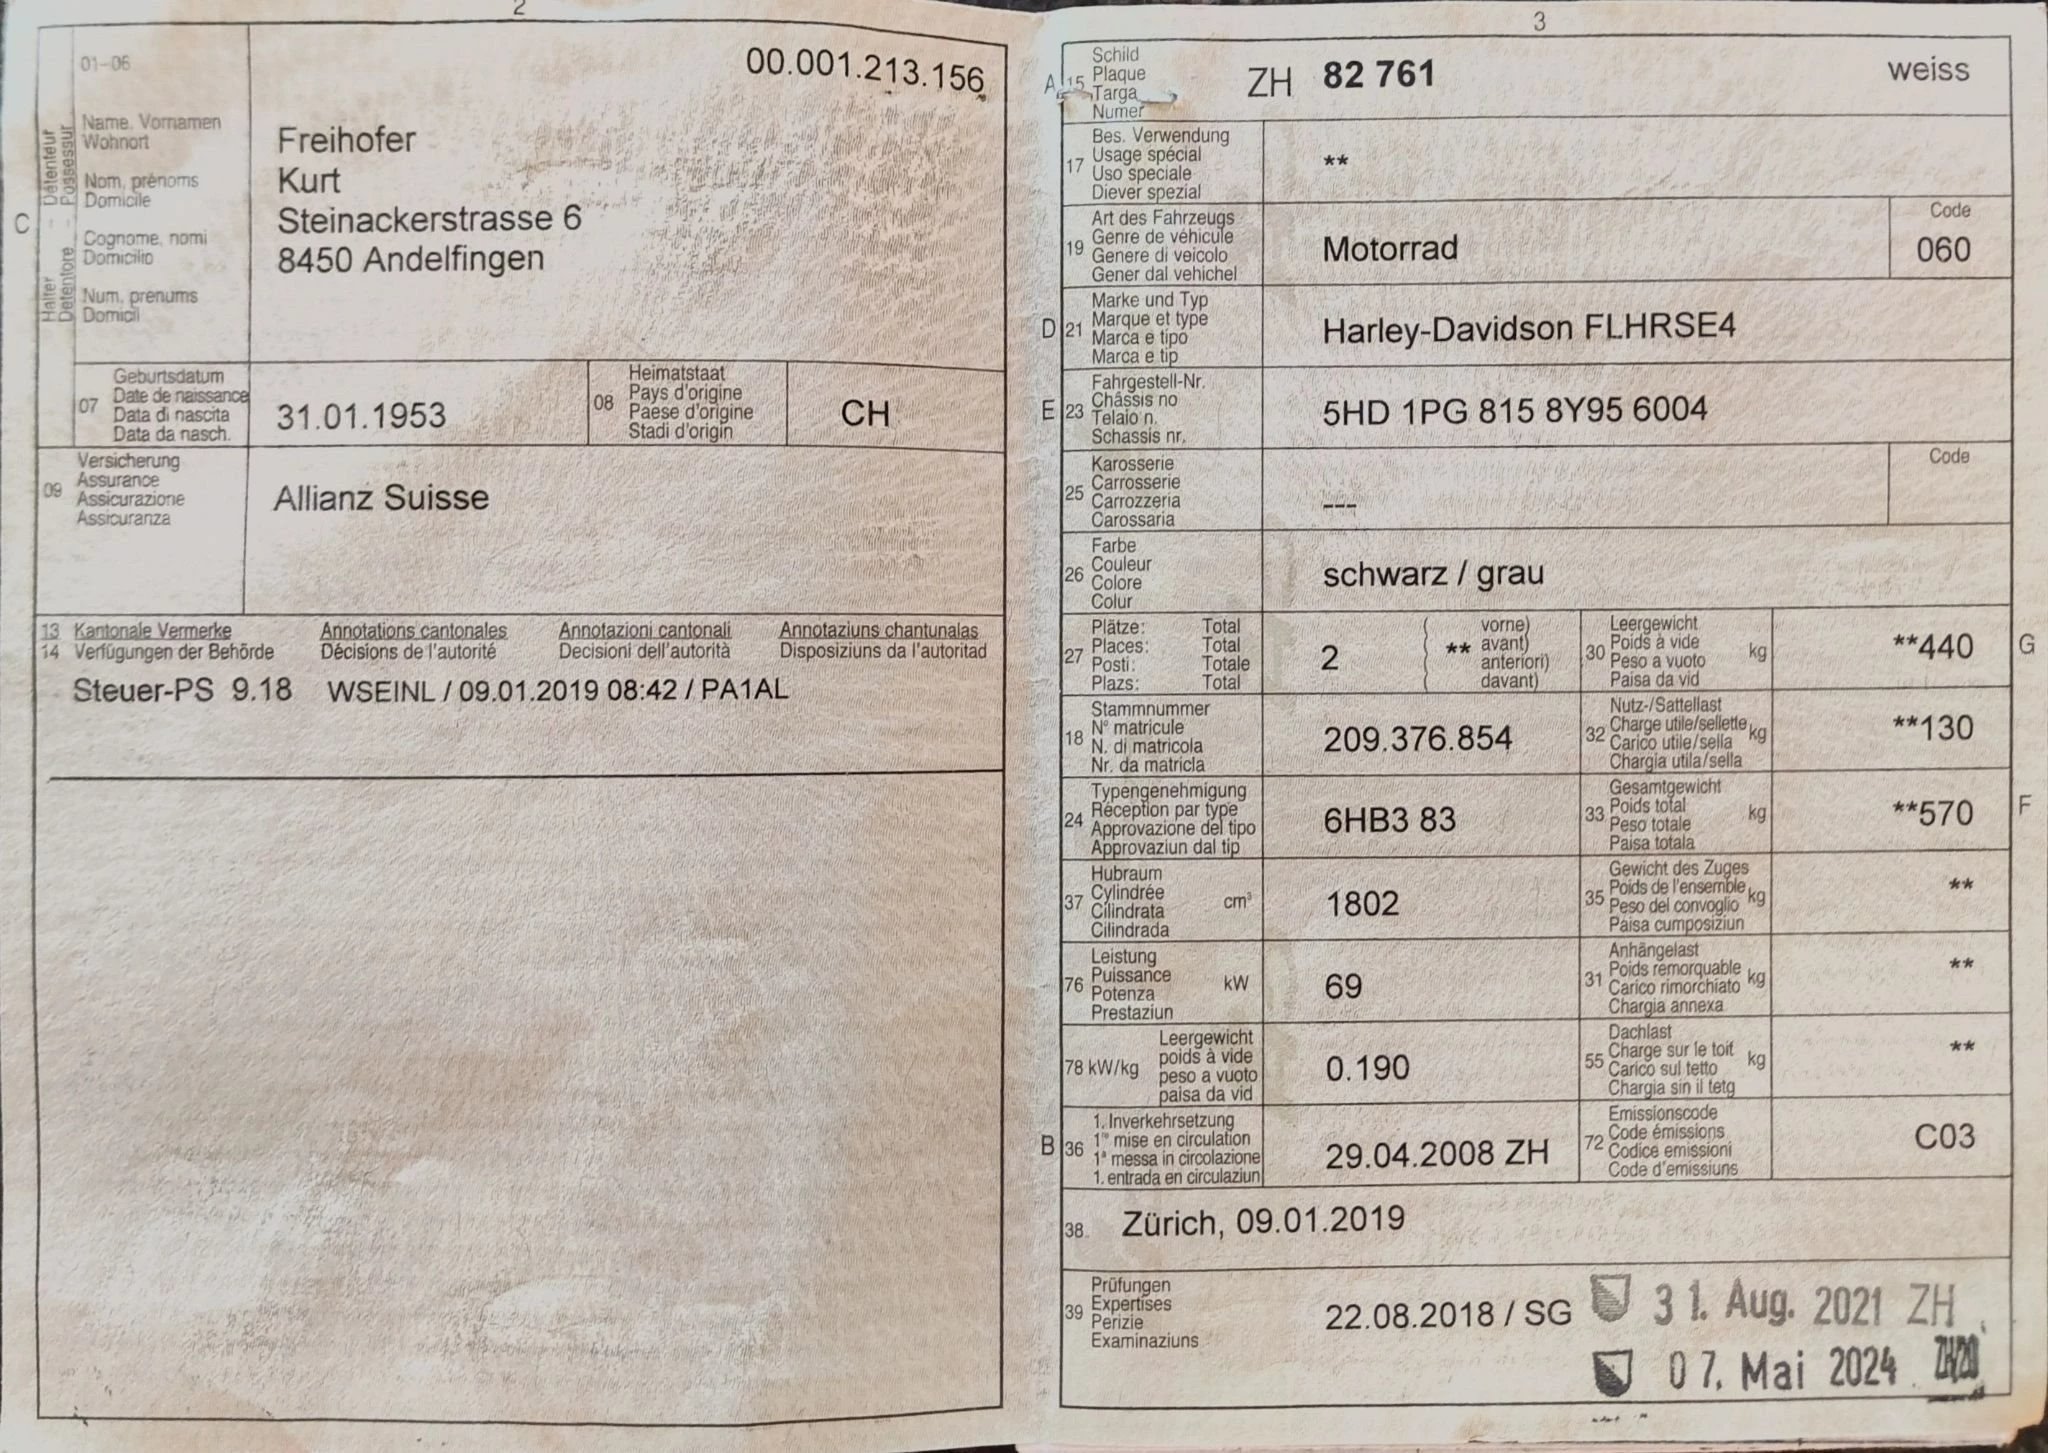 2
01-06
00.001.213.156
Halter - Détenteur
Detentore - Possessur
C
Name, Vornamen
Wohnort
Nom, prénoms
Domicile
Cognome, nomi
Domicilio
Num, prenums
Domicil
Freihofer
Kurt
Steinackerstrasse 6
8450 Andelfingen
07
Geburtsdatum
Date de naissance
Data di nascita
Data da nasch.
31.01.1953
08
Heimatstaat
Pays d'origine
Paese d'origine
Stadi d'origin
CH
09
Versicherung
Assurance
Assicurazione
Assicuranza
Allianz Suisse
13 Kantonale Vermerke Annotations cantonales Annotazioni cantonali Annotaziuns chantunalas
14 Verfügungen der Behörde Décisions de l'autorité Decisioni dell'autorità Disposiziuns da l'autoritad
Steuer-PS 9.18 WSEINL / 09.01.2019 08:42 / PA1AL
3
A 15
Schild
Plaque
Targa
Numer
ZH 82 761 weiss
17
Bes. Verwendung
Usage spécial
Uso speciale
Diever spezial
**
19
Art des Fahrzeugs
Genre de véhicule
Genere di veicolo
Gener dal vehichel
Motorrad
Code
060
D 21
Marke und Typ
Marque et type
Marca e tipo
Marca e tip
Harley-Davidson FLHRSE4
E 23
Fahrgestell-Nr.
Châssis no
Telaio n.
Schassis nr.
5HD 1PG 815 8Y95 6004
25
Karosserie
Carrosserie
Carrozzeria
Carossaria
---
Code
26
Farbe
Couleur
Colore
Colur
schwarz / grau
27
Plätze: Total
Places: Total
Posti: Totale
Plazs: Total
2
( vorne)
** avant)
anteriori)
( davant)
30
Leergewicht
Poids à vide
Peso a vuoto
Paisa da vid
kg
**440
G
18
Stammnummer
N° matricule
N. di matricola
Nr. da matricla
209.376.854
32
Nutz-/Sattellast
Charge utile/sellette
Carico utile/sella
Chargia utila/sella
kg
**130
24
Typengenehmigung
Réception par type
Approvazione del tipo
Approvaziun dal tip
6HB3 83
33
Gesamtgewicht
Poids total
Peso totale
Paisa totala
kg
**570
F
37
Hubraum
Cylindrée
Cilindrata
Cilindrada
cm³
1802
35
Gewicht des Zuges
Poids de l'ensemble
Peso del convoglio
Paisa cumposiziun
kg
**
76
Leistung
Puissance
Potenza
Prestaziun
kW
69
31
Anhängelast
Poids remorquable
Carico rimorchiato
Chargia annexa
kg
**
78 kW/kg
Leergewicht
poids à vide
peso a vuoto
paisa da vid
0.190
55
Dachlast
Charge sur le toit
Carico sul tetto
Chargia sin il tetg
kg
**
B 36
1. Inverkehrsetzung
1re mise en circulation
1a messa in circolazione
1. entrada en circulaziun
29.04.2008 ZH
72
Emissionscode
Code émissions
Codice emissioni
Code d'emissiuns
C03
38 Zürich, 09.01.2019
39
Prüfungen
Expertises
Perizie
Examinaziuns
22.08.2018 / SG
31. Aug. 2021 ZH
07. Mai 2024 ZH/20